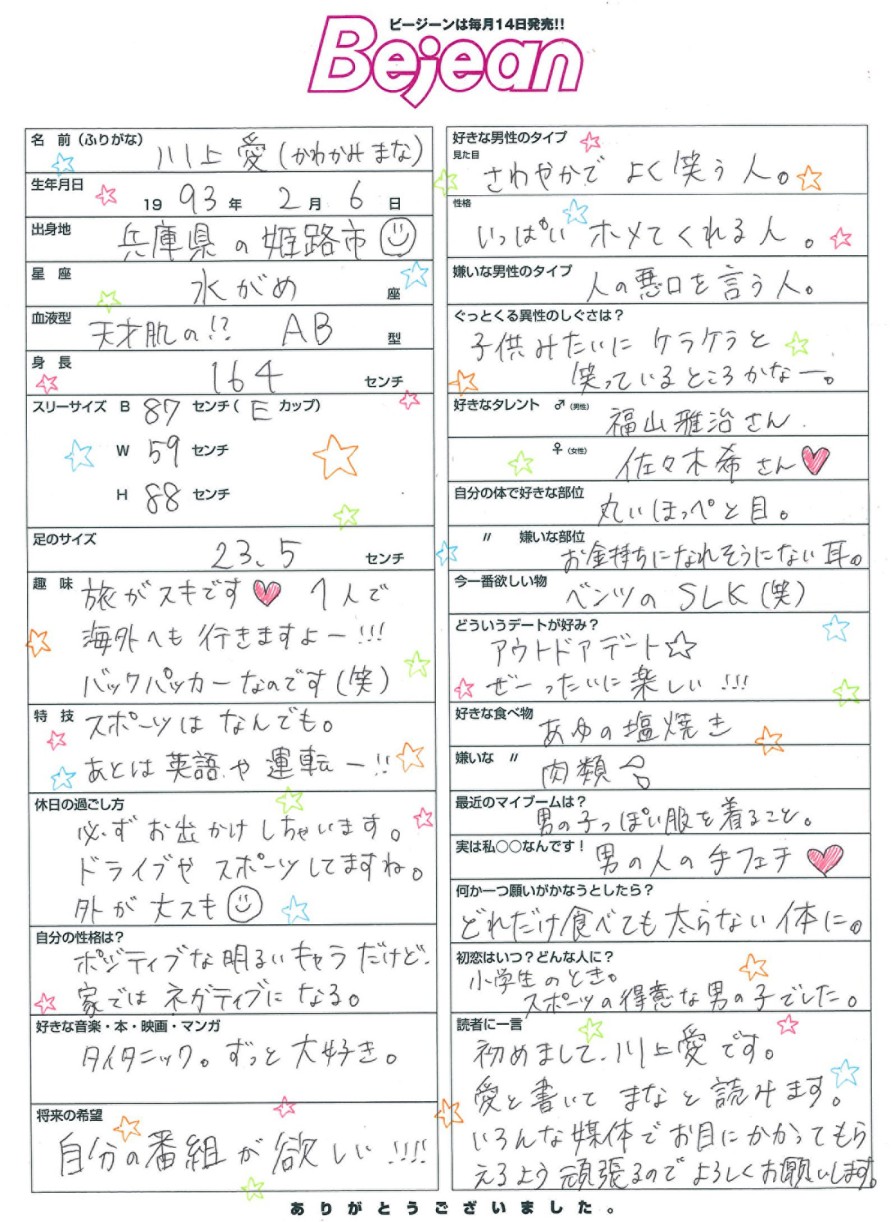 ビージーンは毎月14日発売!!
Bejean
名 前(ふりがな) 川上 愛(かわかみ まな)
生年月日 1993年 2月 6日
出身地 兵庫県の姫路市
星 座 水がめ 座
血液型 天才肌の!? AB 型
身 長 164 センチ
スリーサイズ B 87 センチ( E カップ)
W 59 センチ
H 88 センチ
足のサイズ 23.5 センチ
趣 味 旅がスキです♥ 1人で
海外へも行きますよー!!!
バックパッカーなのです(笑)
特 技 スポーツは なんでも。
あとは英語や運転ー!!
休日の過ごし方
必ず お出かけしちゃいます。
ドライブや スポーツしてますね。
外が 大スキ
自分の性格は?
ポジティブな明るいキャラだけど、
家では ネガティブに なる。
好きな音楽・本・映画・マンガ
タイタニック。ずっと 大好き。
将来の希望
自分の番組が欲しい!!!!
好きな男性のタイプ
見た目 さわやかで よく笑う人。
性格
いっぱい ホメてくれる人。
嫌いな男性のタイプ 人の悪口を言う人。
ぐっとくる異性のしぐさは?
子供みたいに ケラケラと
笑っているところかなー。
好きなタレント ♂(男性) 福山雅治さん
♀(女性) 佐々木希さん♥
自分の体で好きな部位 丸いほっぺと目。
〃 嫌いな部位 お金持ちになれそうにない耳。
今一番欲しい物 ベンツの SLK(笑)
どういうデートが好み?
アウトドアデート☆
ぜーったいに楽しい!!!
好きな食べ物 あゆの塩焼き
嫌いな 〃 肉類
最近のマイブームは? 男の子っぽい服を着ること。
実は私○○なんです! 男の人の手フェチ♥
何か一つ願いがかなうとしたら?
どれだけ食べても太らない体に。
初恋はいつ?どんな人に?
小学生のとき。
スポーツの得意な男の子でした。
読者に一言
初めまして、川上愛です。
愛と書いて まなと読みます。
いろんな媒体でお目にかかってもら
えるよう頑張るのでよろしくお願いします。
ありがとうございました。